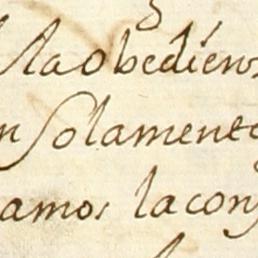 la obediens
n solamente
amos la con